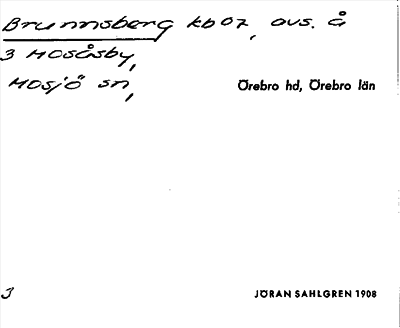 Brunnsberg kb 07, avs. å
3 Mosåsby,
Mosjö sn,
Örebro hd, Örebro län
3
JÖRAN SAHLGREN 1908